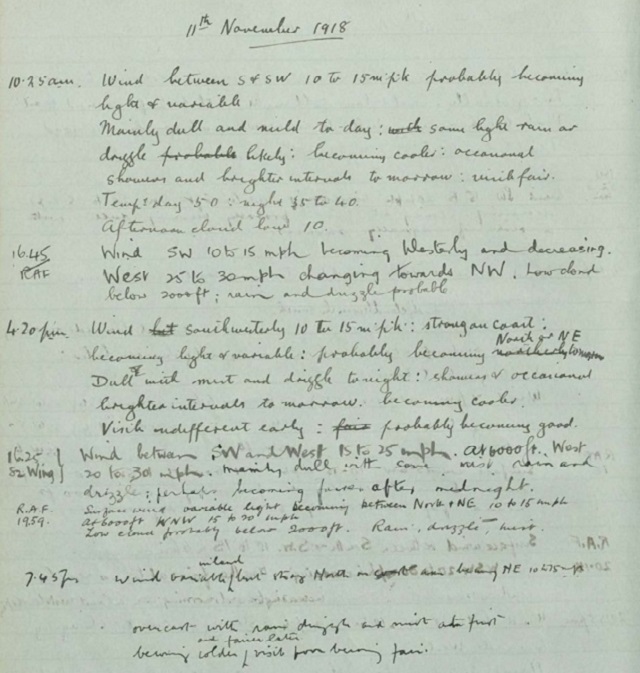 11th November 1918
10.25am. Wind between S & SW 10 to 15 m.p.h. probably becoming
light & variable
Mainly dull and mild to day; with some light rain or
drizzle probable likely: becoming cooler: occasional
showers and brighter intervals to morrow: visib fair.
Temp: day 50: night 35 to 40.
Afternoon cloud low 10.
16.45 Wind SW 10 to 15 mph becoming Westerly and decreasing.
RAF West 25 to 30 mph changing towards NW. Low cloud
below 2000ft; rain and drizzle probable
4.20 p.m. Wind but southwesterly 10 to 15 m.p.h: strong on coast:
becoming light & variable: probably becoming North or NE
Dull with mist and drizzle to night: showers & occasional
brighter intervals to morrow. becoming cooler.
Visib indifferent early: fair probably becoming good.
52 Wing Wind between SW and West 15 to 25 mph. At 6000ft. West
20 to 30 mph. mainly dull with some mist rain and
drizzle; perhaps becoming fairer after midnight.
R.A.F. Surface wind variable light becoming between North & NE 10 to 15 mph
1959. At 6000ft WNW 15 to 20 mph
Low cloud probably below 2000ft. Rain, drizzle, mist.
inland
7.45pm Wind variable but strong North on becoming NE 10 to 15 mph
overcast with rain drizzle and mist at first
and fairer later
becoming colder visib poor becoming fair.